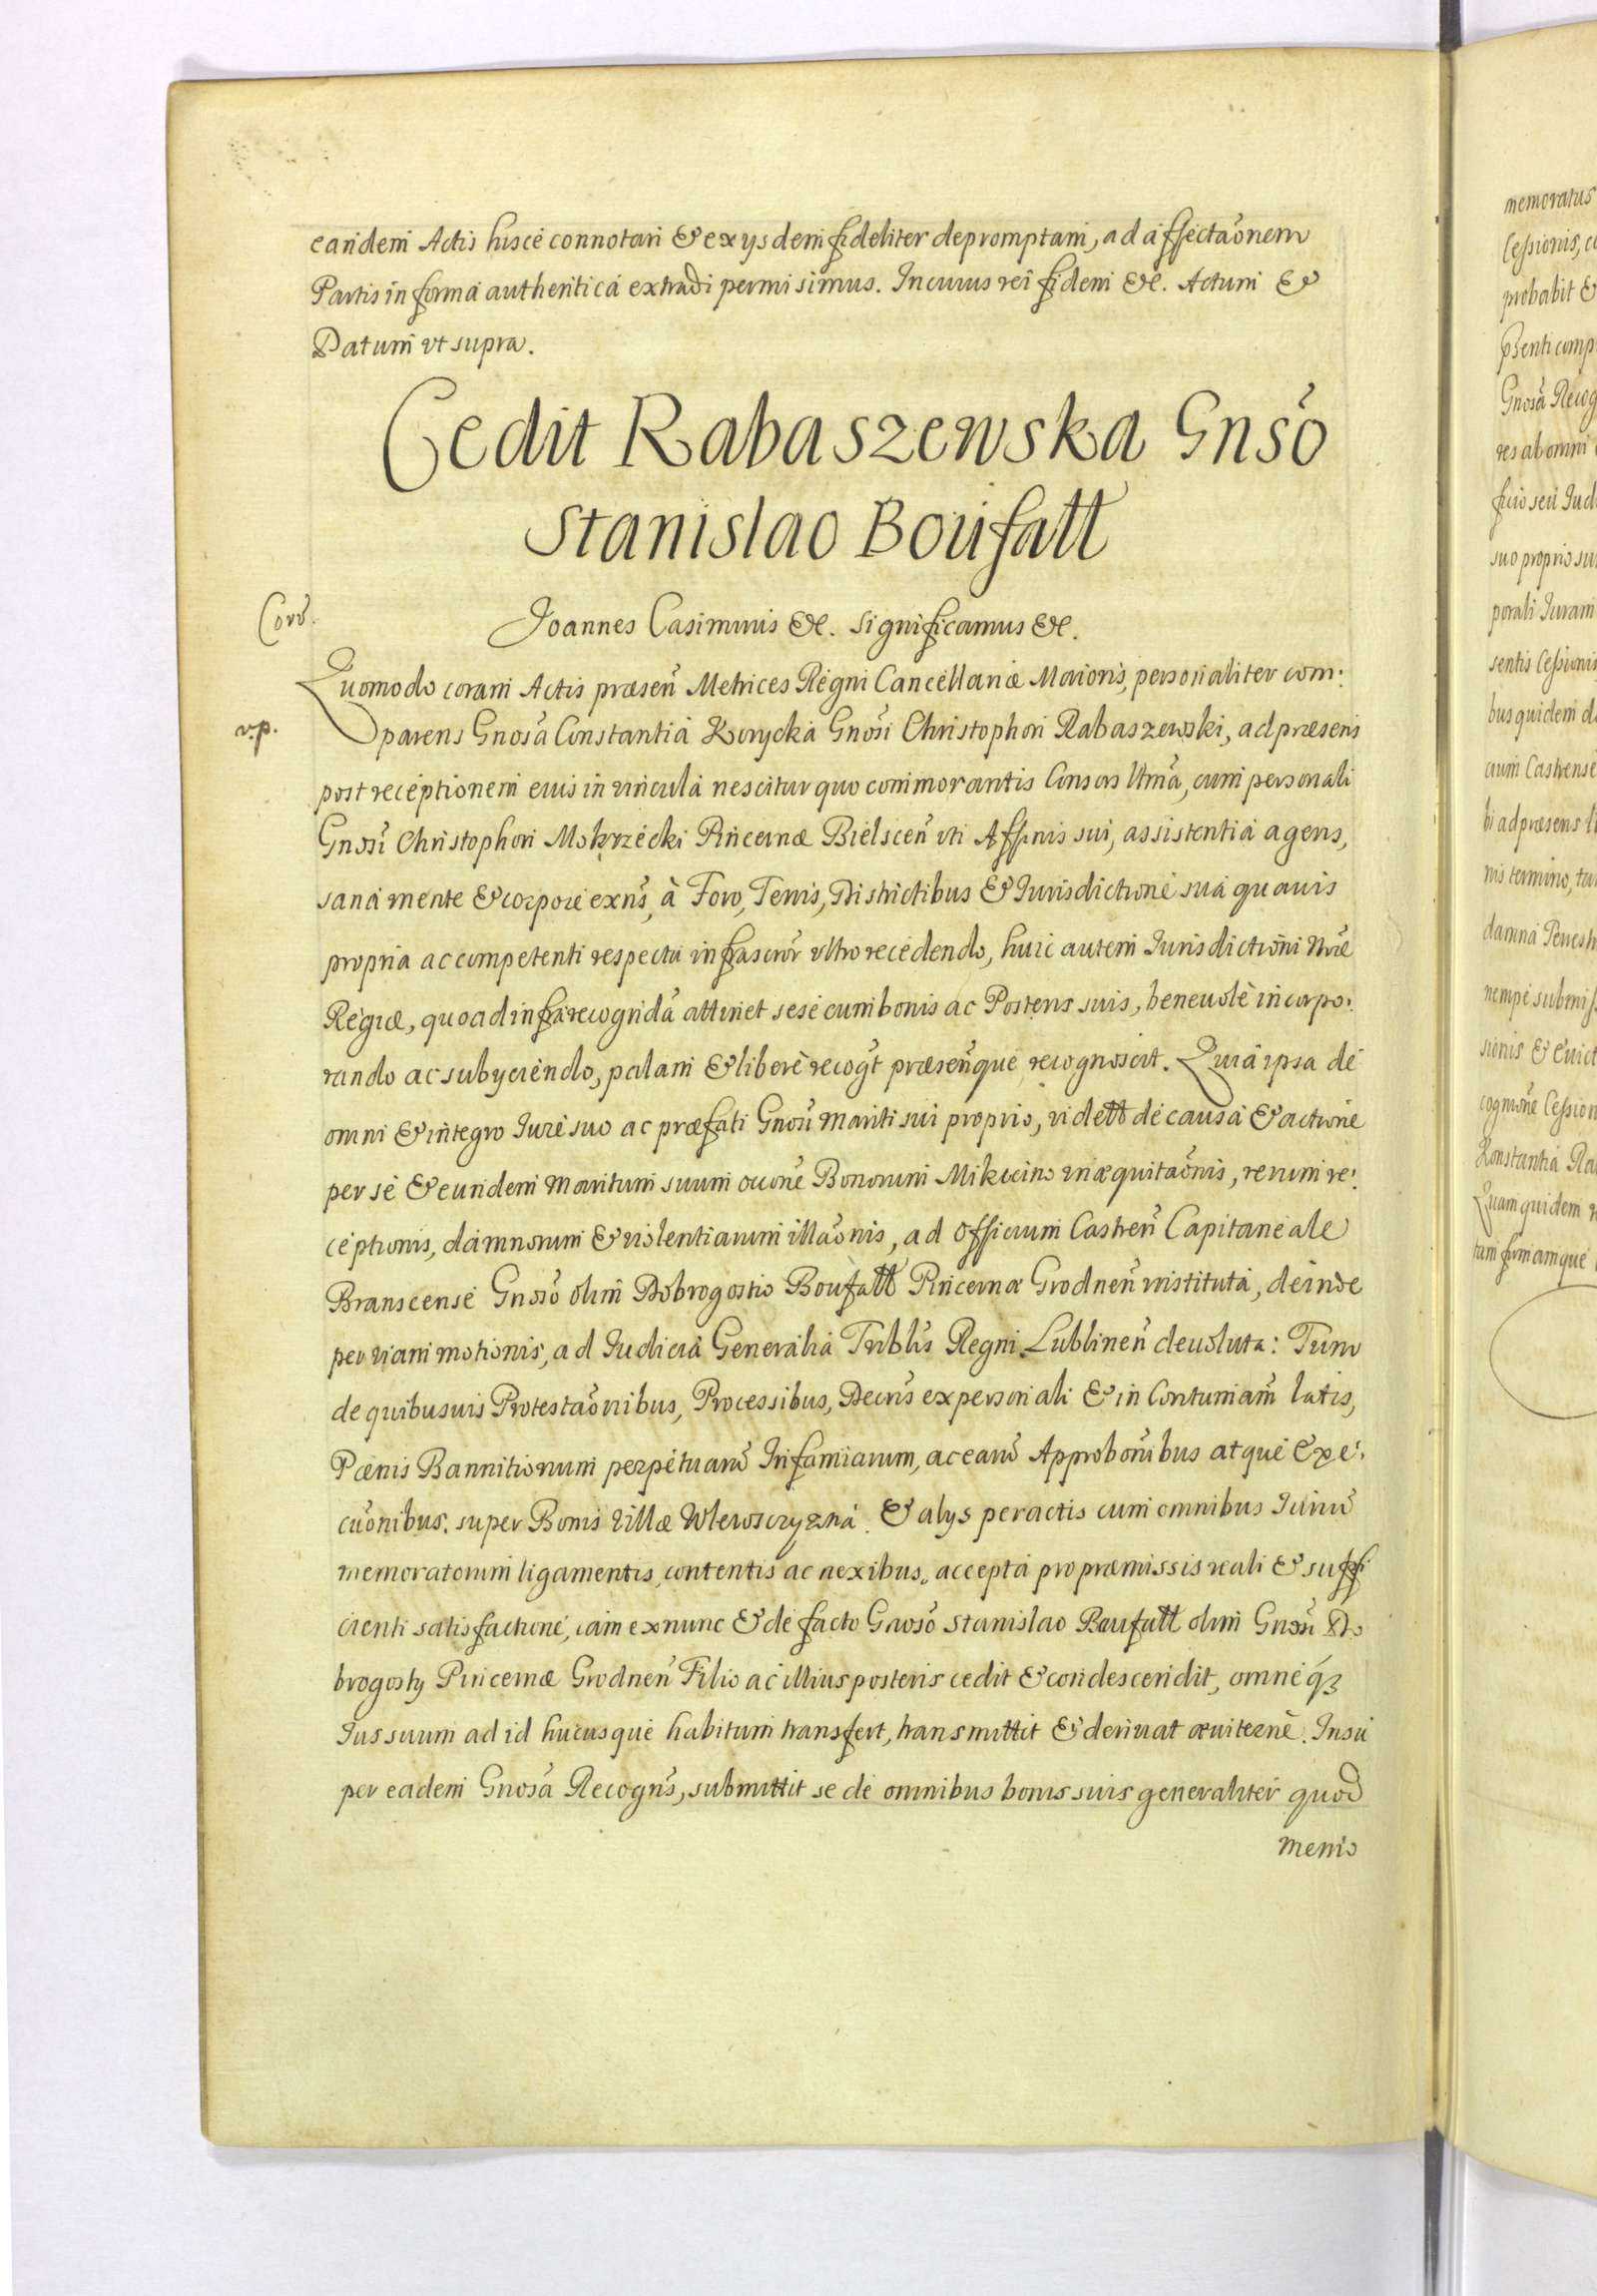 eandem Actis hisce connotari & ex ysdem fideliter depromptam, ad affectaõnem
Partis in forma authentica extradi permisimus. In cuius rei fidem &c. Actum &
Datum vt supra.
Cedit Rabaszewska Gnsõ
Stanislao Boufałł
Joannes Casimirus &c. significamus &c.
Corõ.
Quomodo coram Actis præsen̄ Metrices Regni Cancellariæ Maioris, personaliter com:
v.p.
parens Gnosã Constantia Korycka Gnosi Christophori Rabaszewski, ad præsens
post receptionem eius in vincula nescitur quo commorantis Consors Ltmã, cum personali
Gnosi Christophori Mokrzecki Pincernæ Bielscen̄ vti Affinis sui, assistentia agens,
sana mente & corpore exñs, à Foro, Terris, Districtibus & Iurisdictione sua quauis
propria ac competenti respectu infrascrõr vltro recedendo, huic autem Iurisdictioni Nrãe
Regiæ, quoad infrarecogndã attinet sese cum bonis ac Posteris suis, beneuolè incorpo:
rando ac subyciendo, palam & liberè recogt̃ præsen̄que recognoscit. Quia ipsa de
omni & integro Iure suo ac præfati Gnosi mariti sui proprio, videłł de causa & actione
per se & eundem maritum suum oc̃cone Bonorum Mikicino inæquitaõnis, rerum re:
ceptionis, damnorum & violentiarum illaõnis, ad Officium Castren̄ Capitaneale
Branscense Gnosõ olim Dobrogostio Boufałł Pincernæ Grodnen̄ instituta, deinde
per viam motionis, ad Iudicia Generalia Triblĩs Regni Lublinen̄ deuoluta: Tum
de quibusuis Protestaõnibus, Processibus, Decrĩs ex personali & in Contumiam̃ latis,
Pænis Bannitionum perpetuarũ Infamiarum, ac earũ Approbonĩbus atque Exe:
cuõnibus. super Bonis Villæ Wlewsczyzna. & alys peractis cum omnibus Iuriũ
memoratorum ligamentis, contentis ac nexibus. accepta pro præmissis reali & suffi
cienti satisfactione, iam ex nunc & de facto Gnosõ Stanislao Boufałł olim Gnosi Do
brogosty Pincernæ Grodnen̄ Filio ac illius posteris cedit & condescendit, omneq́;
Ius suum ad id hucusque habitum transfert, transmittit & deriuat æuiternè. Insu
per eadem Gnosã Recogñs, submittit se de omnibus bonis suis generaliter quod
menio
memoratus
Cessionis, c
probabit &
Gnosã Recog
res ab omni
ficio seu Iud
suo proprio su
porali Iuram
sentis Cessionis
bus quidem d
cium Castrense
bi ad præsens
nis termino, ta
damna
nempe submiss
sionis & Euict
cognõne Cession
Konstantia Ra
Quam quidem
tam firmamque